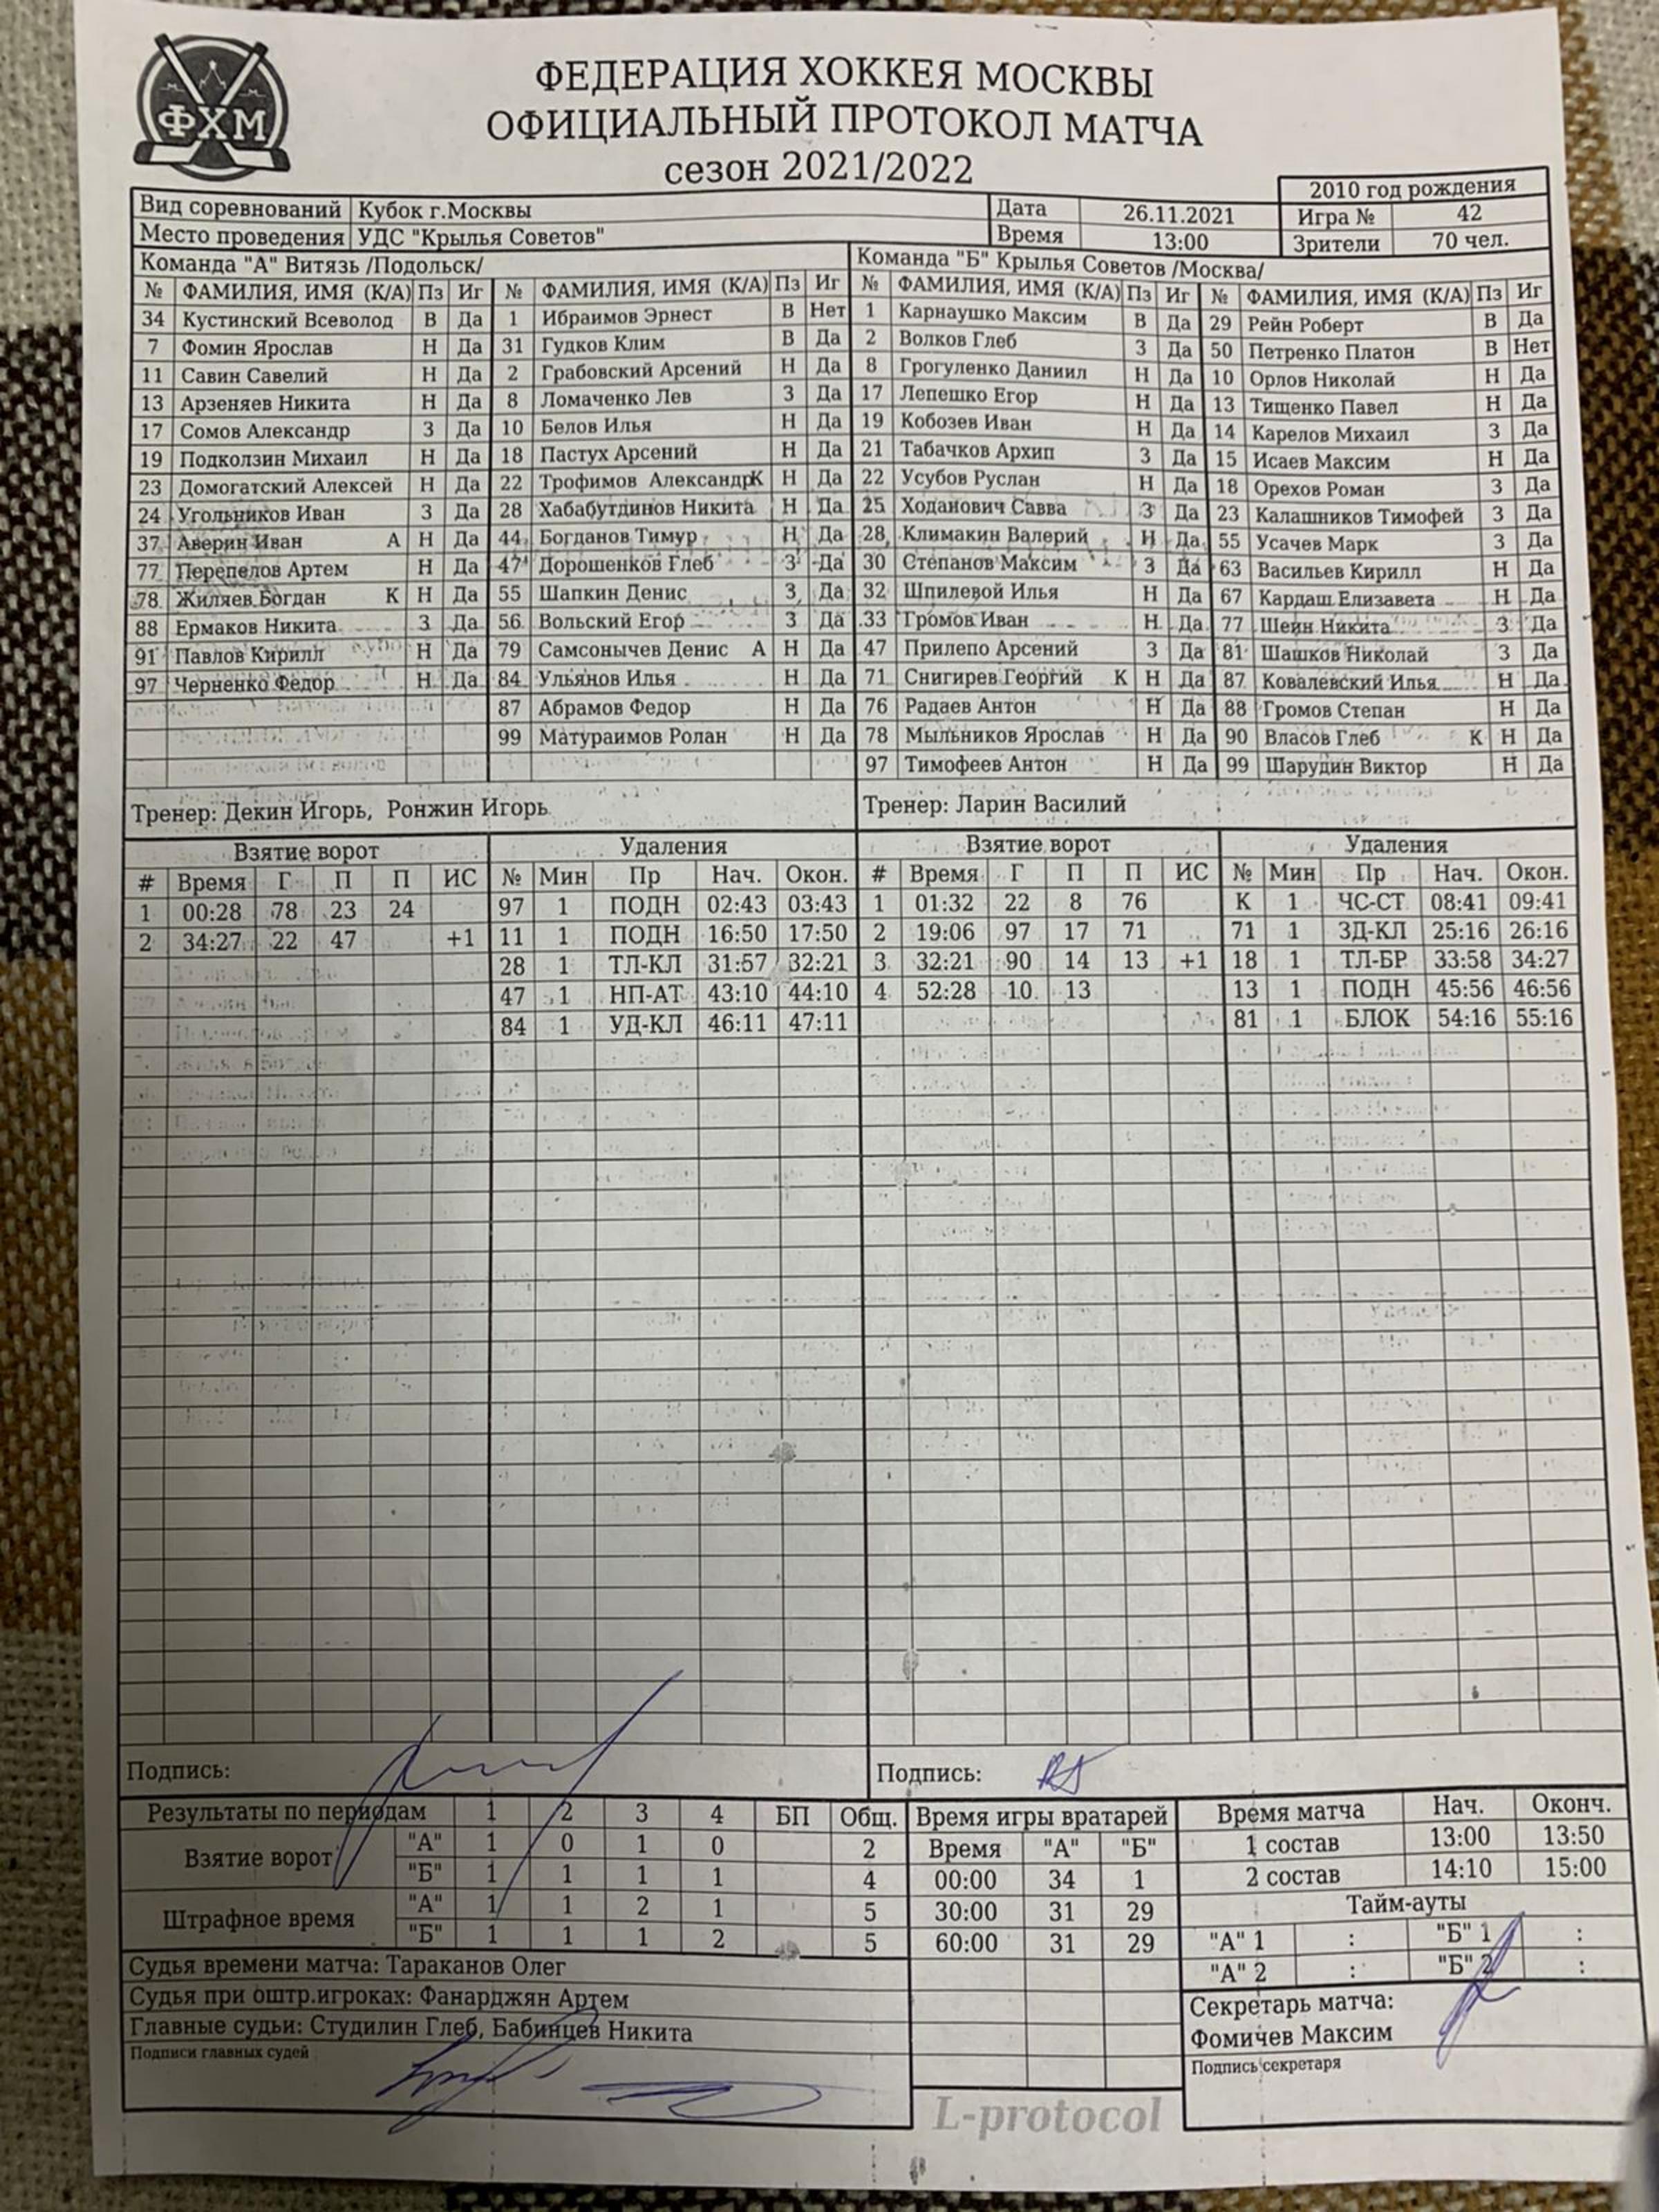 ФХМ
ФЕДЕРАЦИЯ ХОККЕЯ МОСКВЫ
ОФИЦИАЛЬНЫЙ ПРОТОКОЛ МАТЧА
сезон 2021/2022
2010 год рождения
Вид соревнований Кубок г.Москвы Дата 26.11.2021 Игра № 42
Место проведения УДС "Крылья Советов" Время 13:00 Зрители 70 чел.
Команда "А" Витязь /Подольск/ Команда "Б" Крылья Советов /Москва/
№ ФАМИЛИЯ, ИМЯ (К/А) Пз Иг № ФАМИЛИЯ, ИМЯ (К/А) Пз Иг № ФАМИЛИЯ, ИМЯ (К/А) Пз Иг № ФАМИЛИЯ, ИМЯ (К/А) Пз Иг
34 Кустинский Всеволод В Да 1 Ибраимов Эрнест В Нет 1 Карнаушко Максим В Да 29 Рейн Роберт В Да
7 Фомин Ярослав Н Да 31 Гудков Клим В Да 2 Волков Глеб З Да 50 Петренко Платон В Нет
11 Савин Савелий Н Да 2 Грабовский Арсений Н Да 8 Грогуленко Даниил Н Да 10 Орлов Николай Н Да
13 Арзеняев Никита Н Да 8 Ломаченко Лев З Да 17 Лепешко Егор Н Да 13 Тищенко Павел Н Да
17 Сомов Александр З Да 10 Белов Илья Н Да 19 Кобозев Иван Н Да 14 Карелов Михаил З Да
19 Подколзин Михаил Н Да 18 Пастух Арсений Н Да 21 Табачков Архип З Да 15 Исаев Максим Н Да
23 Домогатский Алексей Н Да 22 Трофимов Александр К Н Да 22 Усубов Руслан Н Да 18 Орехов Роман З Да
24 Угольников Иван З Да 28 Хабабутдинов Никита Н Да 25 Ходанович Савва З Да 23 Калашников Тимофей З Да
37 Аверин Иван А Н Да 44 Богданов Тимур Н Да 28 Климакин Валерий Н Да 55 Усачев Марк З Да
77 Перепелов Артем Н Да 47 Дорошенков Глеб З Да 30 Степанов Максим З Да 63 Васильев Кирилл Н Да
78 Жиляев Богдан К Н Да 55 Шапкин Денис З Да 32 Шпилевой Илья Н Да 67 Кардаш Елизавета Н Да
88 Ермаков Никита З Да 56 Вольский Егор З Да 33 Громов Иван Н Да 77 Шеин Никита З Да
91 Павлов Кирилл Н Да 79 Самсонычев Денис А Н Да 47 Прилепо Арсений З Да 81 Шашков Николай З Да
97 Черненко Федор Н Да 84 Ульянов Илья Н Да 71 Снигирев Георгий К Н Да 87 Ковалевский Илья Н Да
87 Абрамов Федор Н Да 76 Радаев Антон Н Да 88 Громов Степан Н Да
99 Матураимов Ролан Н Да 78 Мыльников Ярослав Н Да 90 Власов Глеб К Н Да
97 Тимофеев Антон Н Да 99 Шарудин Виктор Н Да
Тренер: Декин Игорь, Ронжин Игорь Тренер: Ларин Василий
Взятие ворот Удаления Взятие ворот Удаления
# Время Г П П ИС № Мин Пр Нач. Окон. # Время Г П П ИС № Мин Пр Нач. Окон.
1 00:28 78 23 24 97 1 ПОДН 02:43 03:43 1 01:32 22 8 76 К 1 ЧС-СТ 08:41 09:41
2 34:27 22 47 +1 11 1 ПОДН 16:50 17:50 2 19:06 97 17 71 71 1 ЗД-КЛ 25:16 26:16
28 1 ТЛ-КЛ 31:57 32:21 3 32:21 90 14 13 +1 18 1 ТЛ-БР 33:58 34:27
47 1 НП-АТ 43:10 44:10 4 52:28 10 13 13 1 ПОДН 45:56 46:56
84 1 УД-КЛ 46:11 47:11 81 1 БЛОК 54:16 55:16
Подпись: Подпись:
Результаты по периодам 1 2 3 4 БП Общ. Время игры вратарей Время матча Нач. Оконч.
Взятие ворот "А" 1 0 1 0 2 Время "А" "Б" 1 состав 13:00 13:50
"Б" 1 1 1 1 4 00:00 34 1 2 состав 14:10 15:00
Штрафное время "А" 1 1 2 1 5 30:00 31 29 Тайм-ауты
"Б" 1 1 1 2 5 60:00 31 29 "А" 1 : "Б" 1 :
"А" 2 : "Б" 2 :
Судья времени матча: Тараканов Олег
Судья при оштр.игроках: Фанарджян Артем
Главные судьи: Студилин Глеб, Бабинцев Никита
Подписи главных судей
Секретарь матча:
Фомичев Максим
Подпись секретаря
L-protocol